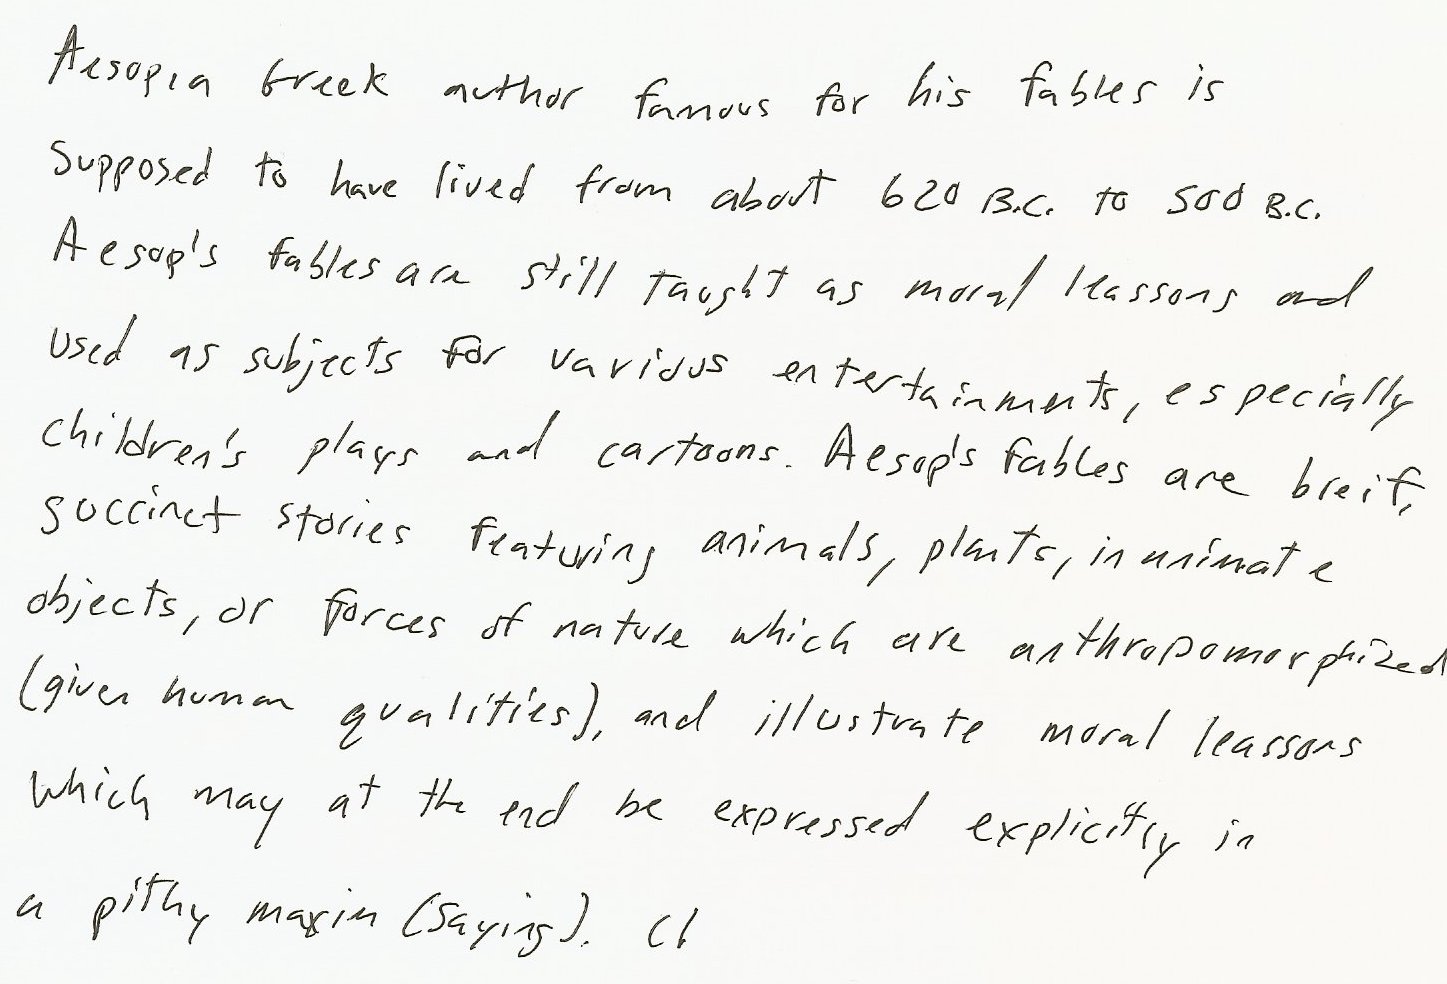 Aesop, a Greek author famous for his fables is
supposed to have lived from about 620 B.C. to 500 B.C.
Aesop's fables are still taught as moral leassons and
used as subjects for various entertainments, especially
children's plays and cartoons. Aesop's fables are breif,
succinct stories featuring animals, plants, inanimate
objects, or forces of nature which are anthropomorphized
(given human qualities), and illustrate moral leassons
which may at the end be expressed explicitly in
a pithy maxim (saying).